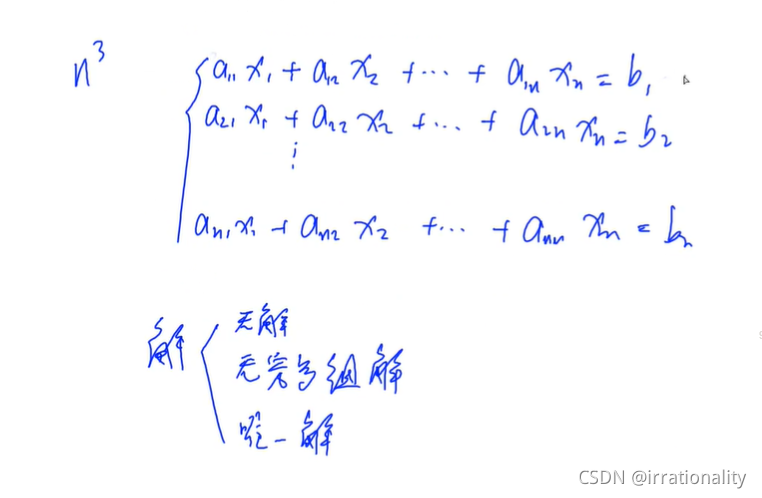 n³
a₁₁x₁ + a₁₂x₂ + ··· + a₁ₙxₙ = b₁
a₂₁x₁ + a₂₂x₂ + ··· + a₂ₙxₙ = b₂
⋮
aₙ₁x₁ + aₙ₂x₂ + ··· + aₙₙxₙ = bₙ
解
无解
无穷多组解
唯一解
CSDN @irrationality